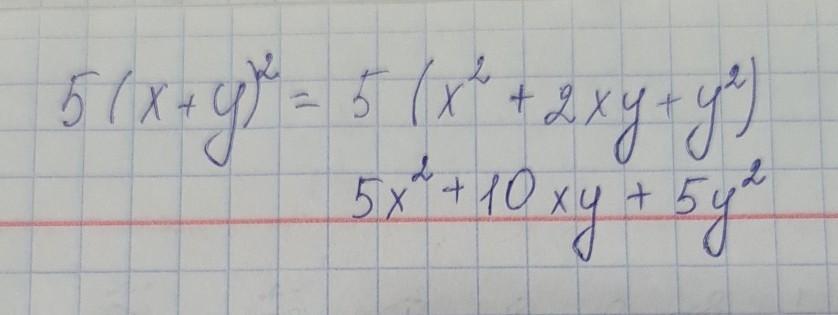 5(x+y)² = 5(x² + 2xy + y²)
5x² + 10xy + 5y²